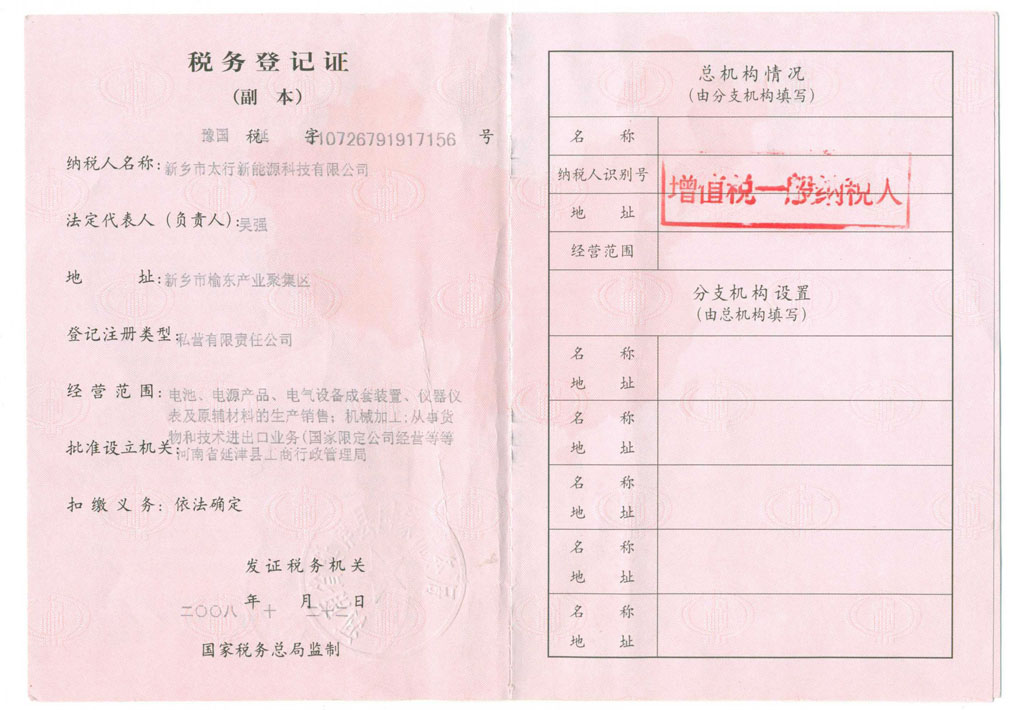 税务登记证
(副 本)
豫国 税延 字410726791917156 号
纳税人名称:新乡市太行新能源科技有限公司
法定代表人(负责人):吴强
地 址:新乡市榆东产业聚集区
登记注册类型:私营有限责任公司
经营范围:电池、电源产品、电气设备成套装置、仪器仪
表及原辅材料的生产销售;机械加工;从事货
物和技术进出口业务(国家限定公司经营等等
批准设立机关:河南省延津县工商行政管理局
扣缴义务:依法确定
发证税务机关
二〇〇八 年 十 月 二十二 日
国家税务总局监制
总机构情况
(由分支机构填写)
名 称
纳税人识别号
地 址
经营范围
增值税一般纳税人
分支机构设置
(由总机构填写)
名 称
地 址
名 称
地 址
名 称
地 址
名 称
地 址
名 称
地 址